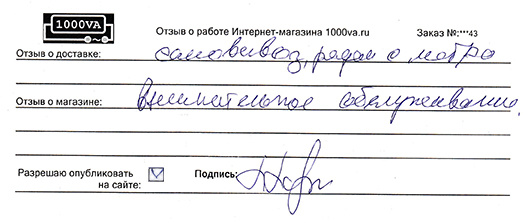 1000VA
Отзыв о работе Интернет-магазина 1000va.ru
Заказ №:***43
Отзыв о доставке: самовывоз, рядом с метро
Отзыв о магазине: Внимательное обслуживание.
Разрешаю опубликовать
на сайте:
Подпись: